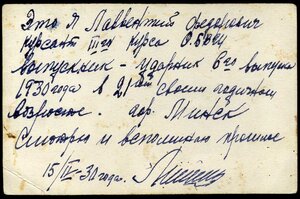 Это Я Лаврентий Федорович
курсант III го курса О.Б.В.Ш
выпускник - ударник 6го выпуска
1930 года в 21 своим годичном
возрасте. гор. Минск
Смотрю и вспоминаю прошлое
15/IV-30 года.